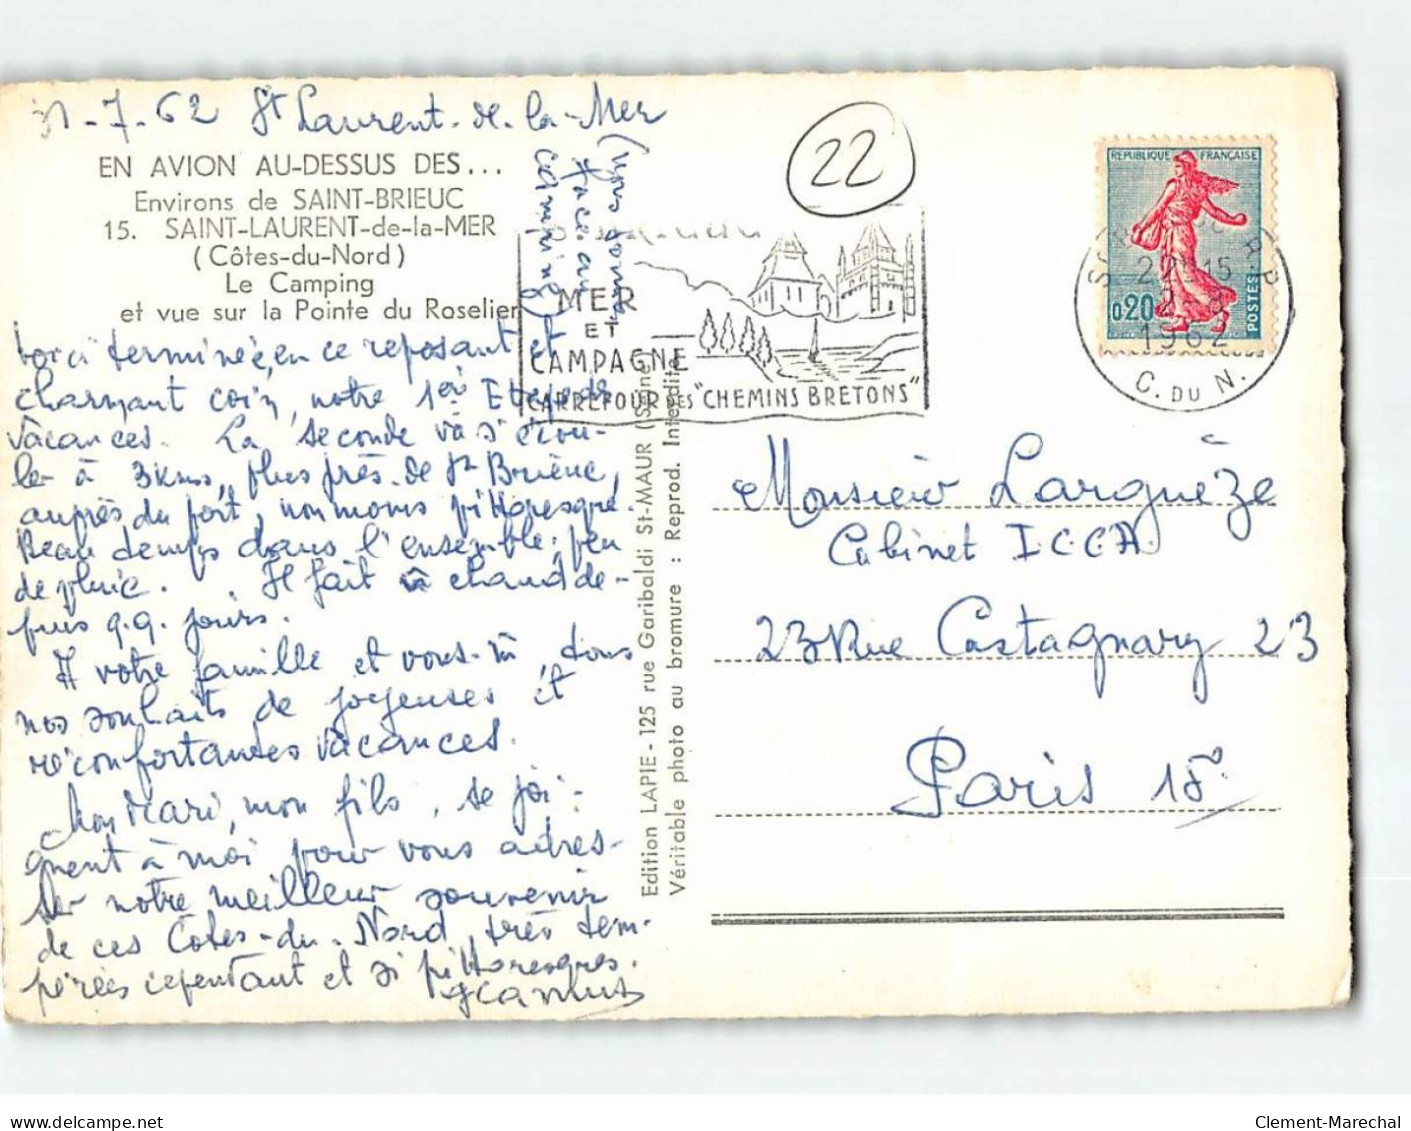 31-7-62 St Laurent-de-la-Mer
EN AVION AU-DESSUS DES...
Environs de SAINT-BRIEUC
15. SAINT-LAURENT-de-la-MER
(Côtes-du-Nord)
Le Camping
et vue sur la Pointe du Roselier
(nous sommes
face au
camping)
Voici terminée, en ce reposant et
charmant coin, notre 1er Etape de
vacances. La seconde va s'écou-
ler à 3kms, plus près de St Brieuc,
auprès du port, non moins pittoresque.
Beau temps dans l'ensemble, peu
de pluie. Il fait chaud de-
puis q.q. jours.
A votre famille et vous-m, tous
nos souhaits de joyeuses et
réconfortantes vacances.
Mon Mari, mon fils, se joi-
gnent à moi pour vous adres-
ser notre meilleur souvenir
de ces Cotes-du-Nord, très tem-
pérées cependant et si pittoresques.
Edition LAPIE - 125 rue Garibaldi St-MAUR (Seine)
Véritable photo au bromure : Reprod. Interdite
22
MER
ET
CAMPAGNE
CARREFOUR DES "CHEMINS BRETONS"
REPUBLIQUE FRANÇAISE
0,20
POSTES
22H15
1962
C. DU N.
Monsieur Larguèze
Cabinet I.C.C.A.
23 Rue Castagnary 23
Paris 15e
Clement-Marechal
delcampe.net